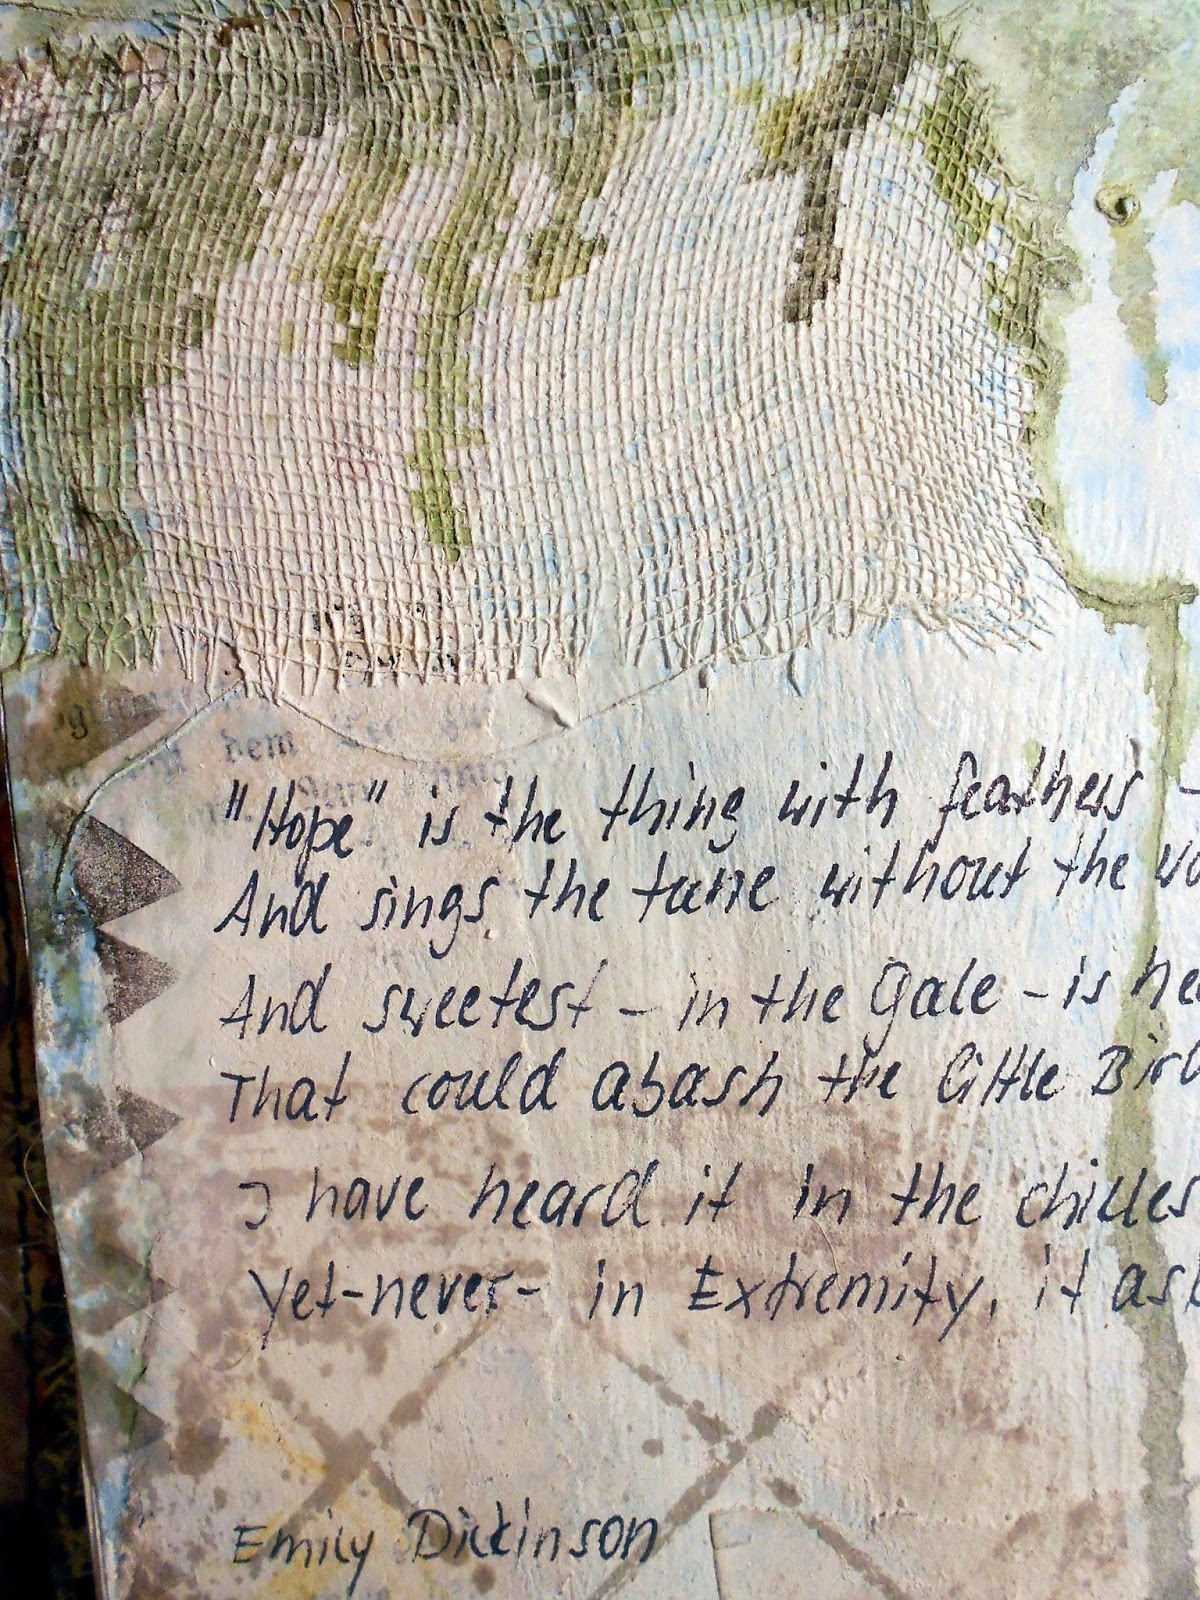 dem
"Hope" is the thing with feathers -
And sings the tune without the
And sweetest - in the Gale - is
That could abash the little Bird
I have heard it in the
Yet-never- in Extremity, it
Emily Dickinson